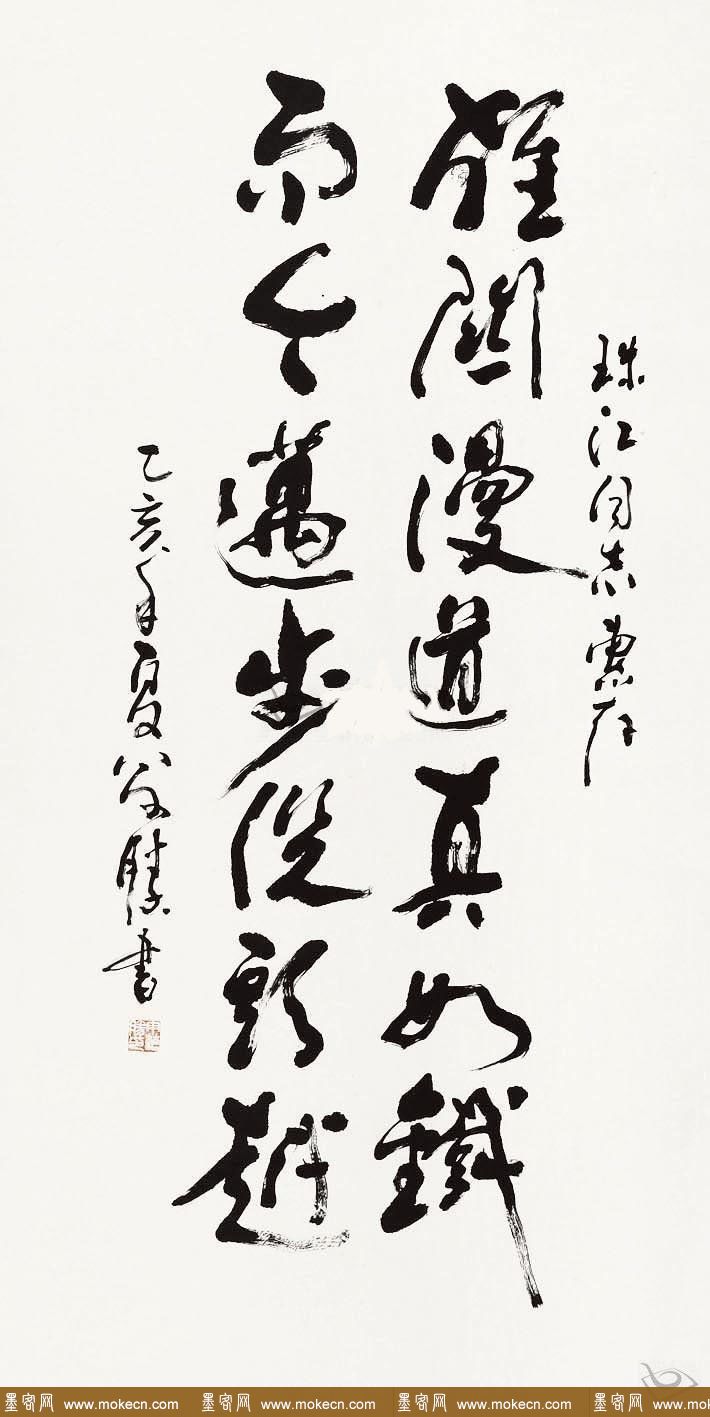 珠江同志惠存
雄關漫道真如鐵
而今邁步從頭越
乙亥年夏書
墨客网 www.mokecn.com 墨客网 www.mokecn.com 墨客网 www.mokecn.com 墨客网 www.